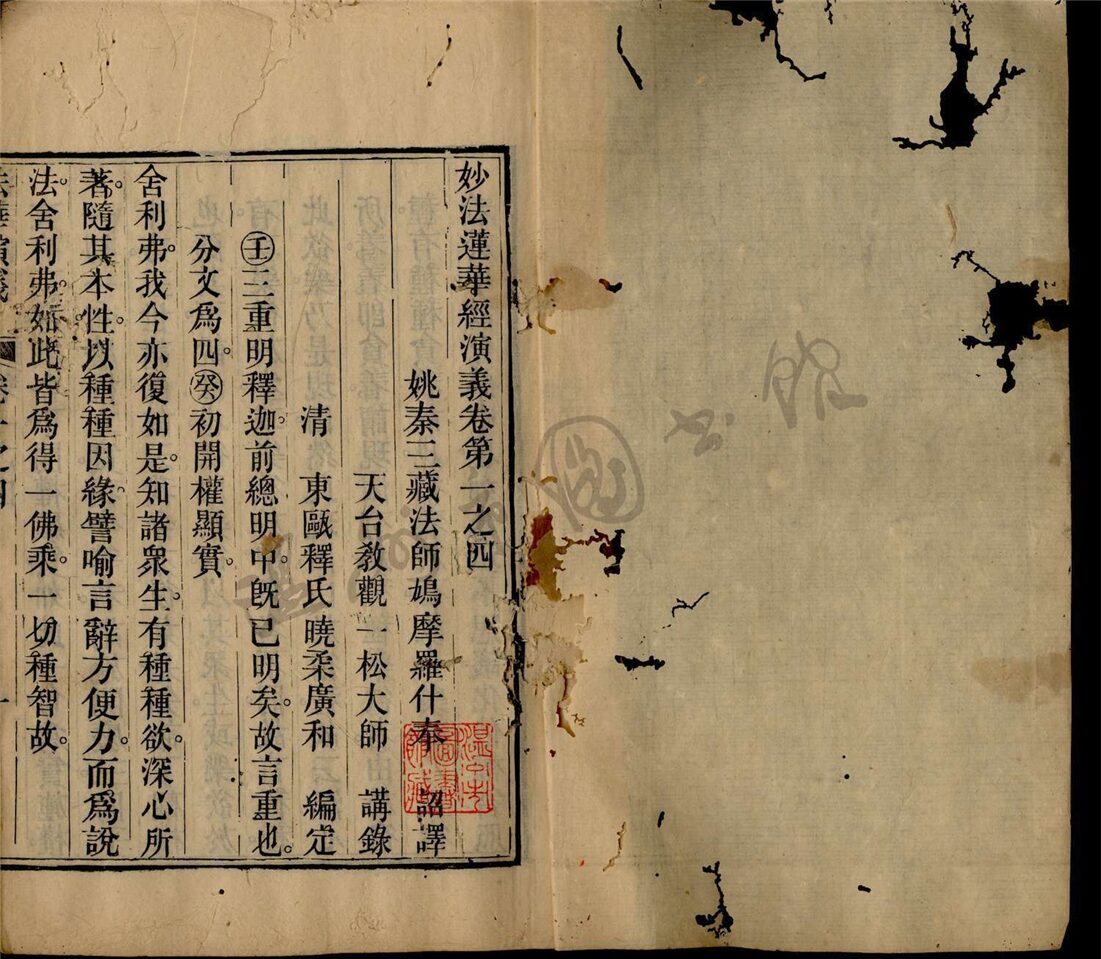 妙法蓮華經演義卷第一之四
姚秦三藏法師鳩摩羅什奉 詔譯
天台教觀一松大師 講錄
清 東甌釋氏曉柔廣和 編定
㊂三重明釋迦前總明中旣已明矣故言重也。
分文爲四。癸初開權顯實。
舍利弗。我今亦復如是。知諸衆生。有種種欲。深心所
著。隨其本性。以種種因緣。譬喻言辭。方便力。而爲說
法。舍利弗。如此皆爲得一佛乘。一切種智故。
法華演義 卷一之四 一
溫州市圖書館藏